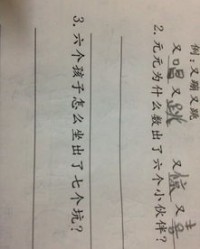 例：又蹦又跳
又唱又跳 又惊又喜
2.元元为什么数出了六个小伙伴？
3.六个孩子怎么坐出了七个坑？